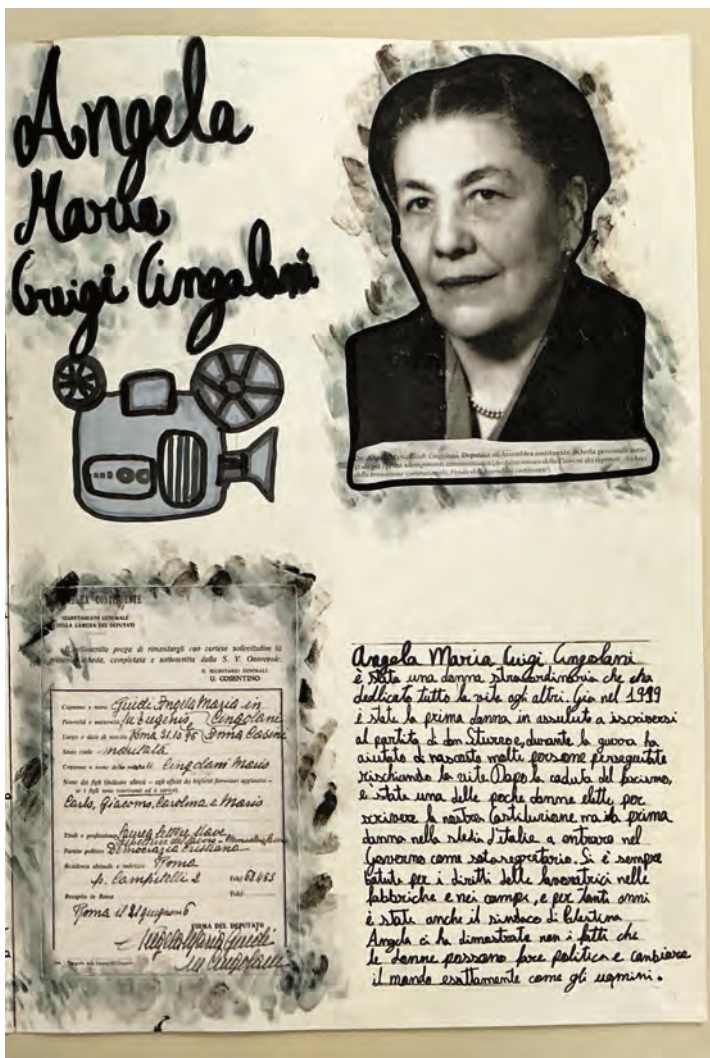 Angela
Maria
Guigi Cingolani
On. Angela Maria Guidi Cingolani, Deputata all'Assemblea costituente. Scheda personale
per i primi adempimenti amministrativi (Archivio storico della Camera dei deputati,
della transizione costituzionale, Fondo dell'Assemblea costituente).
ASSEMBLEA COSTITUENTE
SEGRETARIATO GENERALE
DELLA CAMERA DEI DEPUTATI
Il sottoscritto prega di rimandargli con cortese sollecitudine la
presente scheda, completata e sottoscritta dalla S. V. Onorevole.
IL SEGRETARIO GENERALE
U. COSENTINO
Cognome e nome Guidi Angela Maria in
Paternità e maternità fu Eugenio, Cingolani
Luogo e data di nascita Roma 31.10.96 Anna Casini
Stato civile maritata
Cognome e nome della moglie Cingolani Mario
Nome dei figli (indicare altresì - agli effetti dei biglietti ferroviari aggiuntivi -
se i figli sono conviventi ed a carico)
Carlo, Giacomo, Carolina e Mario
Titoli e professione Laurea lettere slave
Partito politico Democrazia Cristiana
Residenza abituale e indirizzo Roma
p. Campitelli 2 Tel. 62.485
Recapito in Roma Tel.
Roma il 21 giugno 46
FIRMA DEL DEPUTATO
Angela Maria Guidi
in Cingolani
Angela Maria Guigi Cingolani
è stata una donna straordinaria che cha
dedlicato tutto la vite agli altri. Gia nel 1919
è state la prima donna in assuluto a iscriversi
al partito di don Sturzo e, durante la guerra ha
aiutato di nascosto molte persone perseguitate
rischiando la vite. Dapo la caduta del fascismo,
e' state una delle poche donne elette per
scrivere la nostra Costituzione ma la prima
danna nella storia d'Italia a entrare nel
Governo come sotosegretario. Si è sempre
batute per i diritti delle lavoratrici nelle
fabbriche e nei campi, e per tanti anni
è state anche il sindaco di Palestrina
Angela ci ha dimostrato non i fatti che
le donne possono fare politica e canbiare
il mondo esattamente come gli uomini.